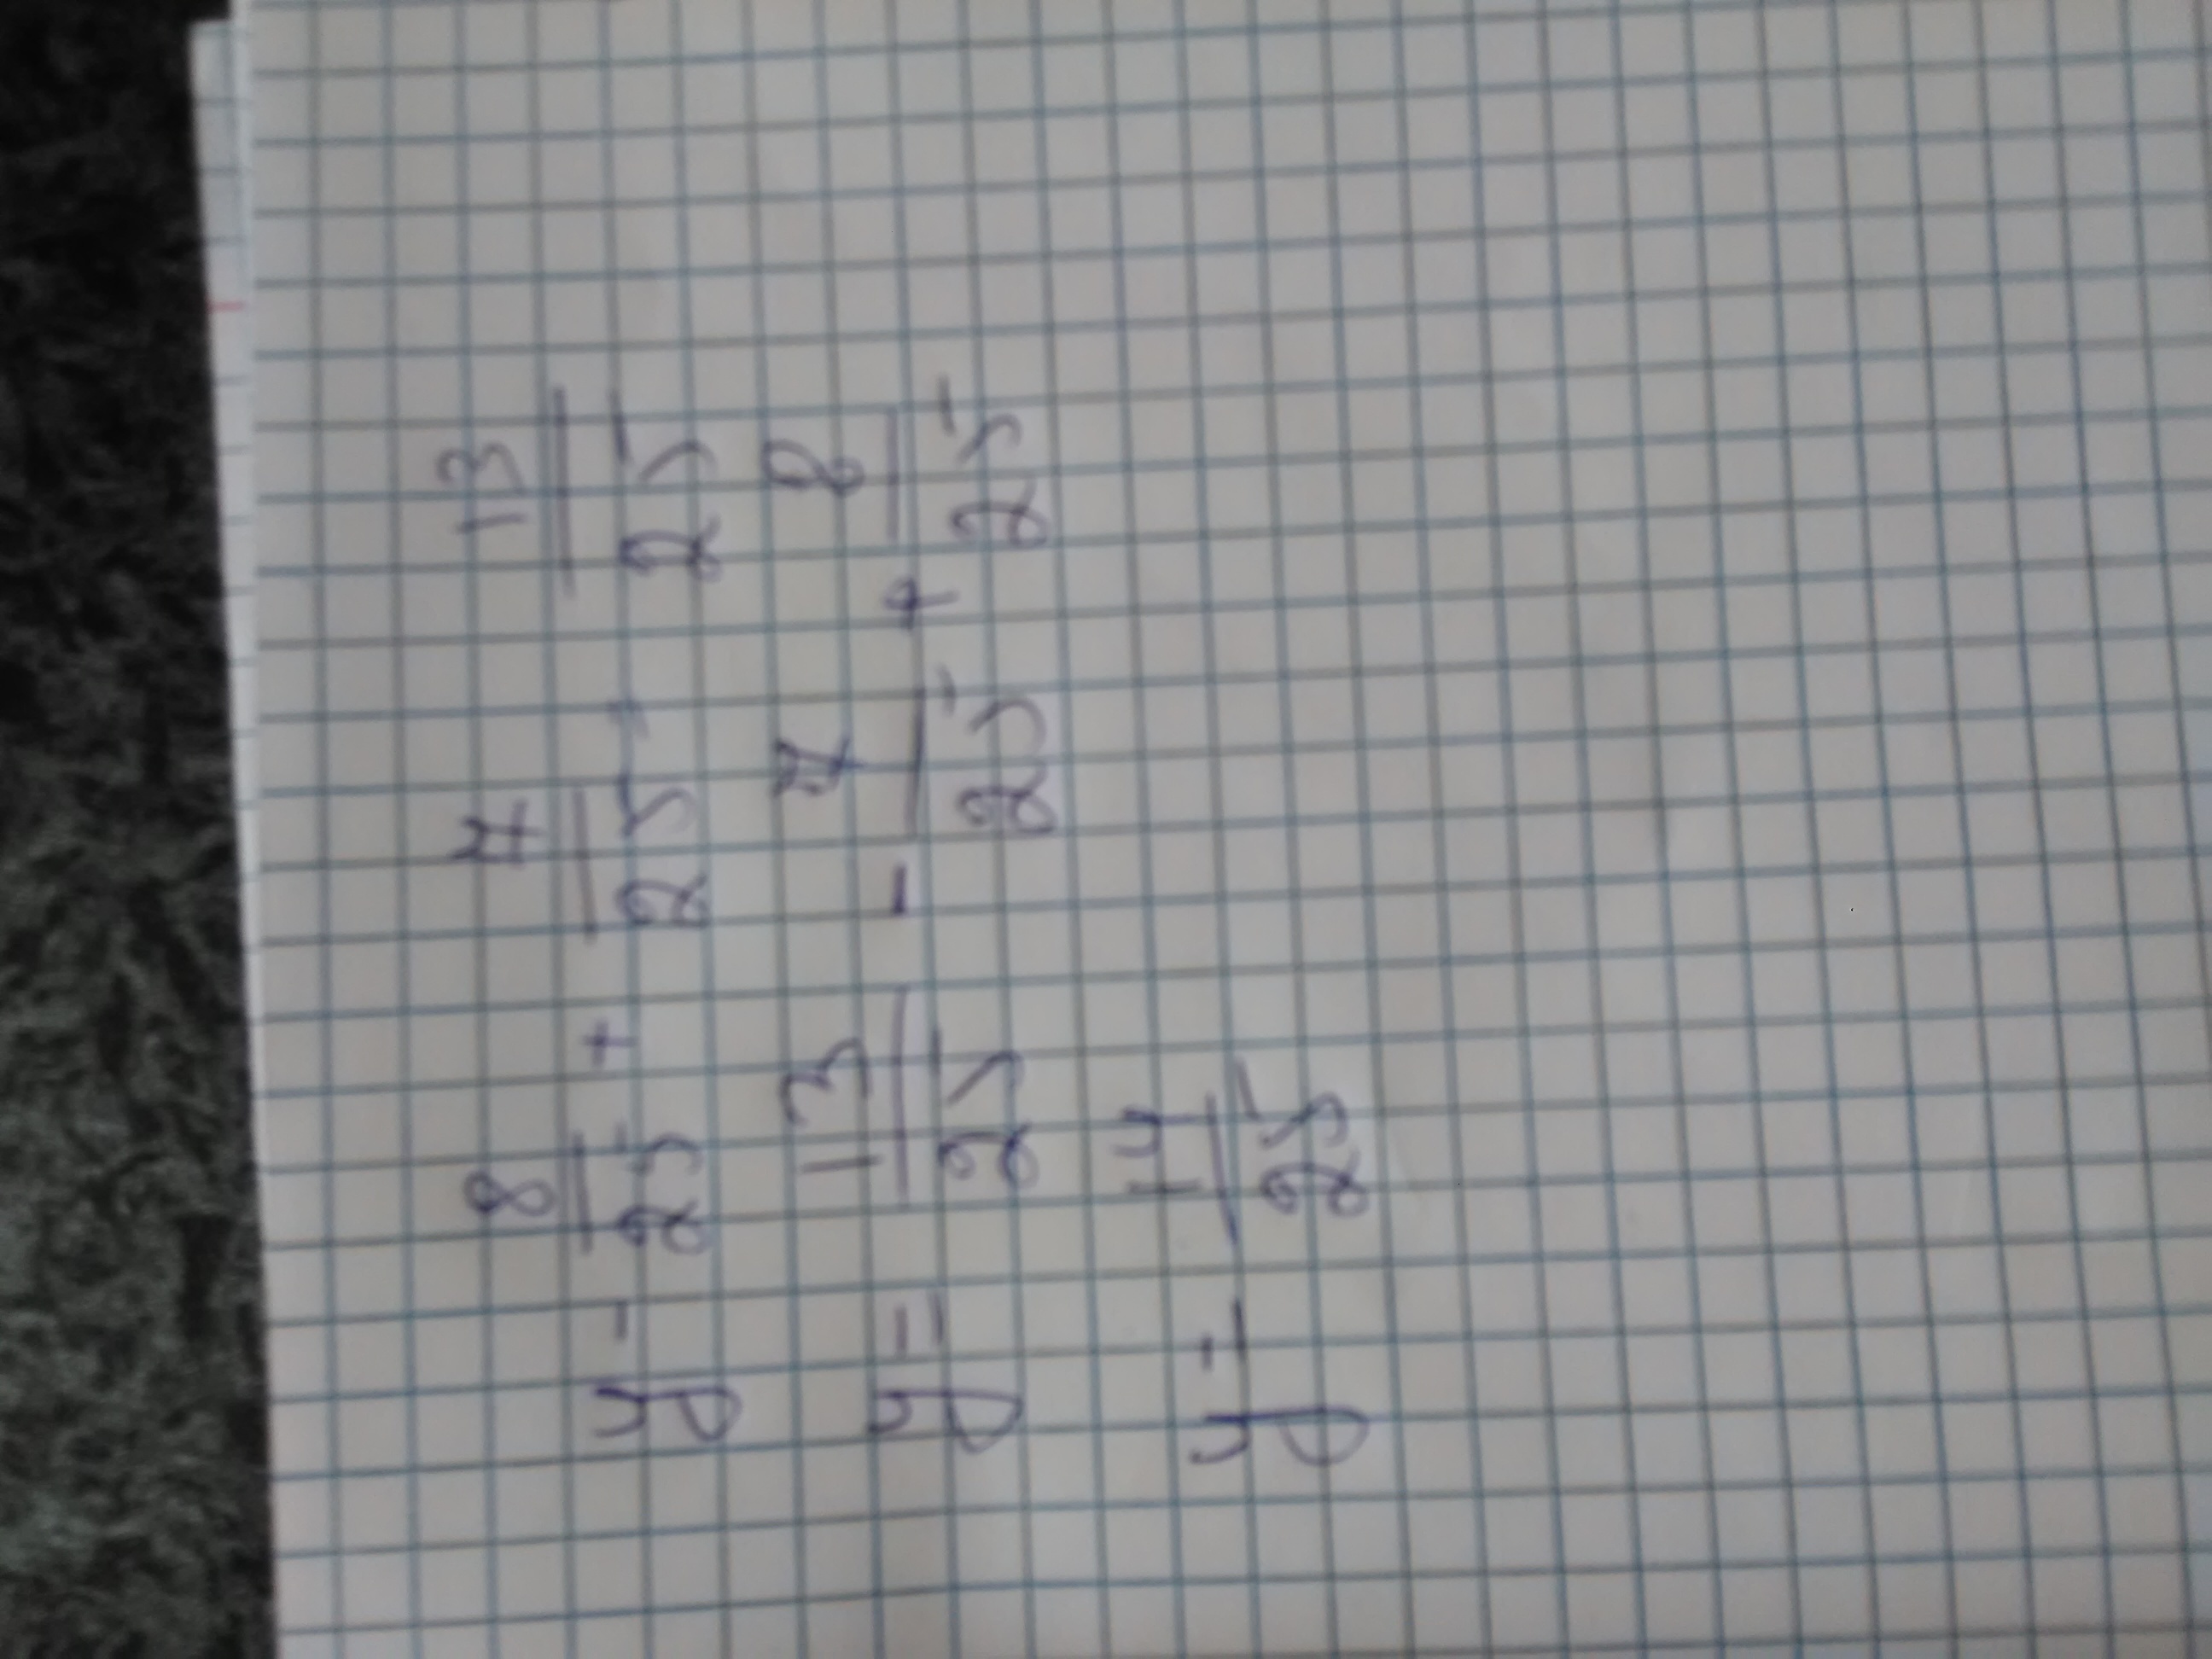 y - 8/25 + 7/25 = 13/25
y = 13/25 - 7/25 + 8/25
y = 14/25